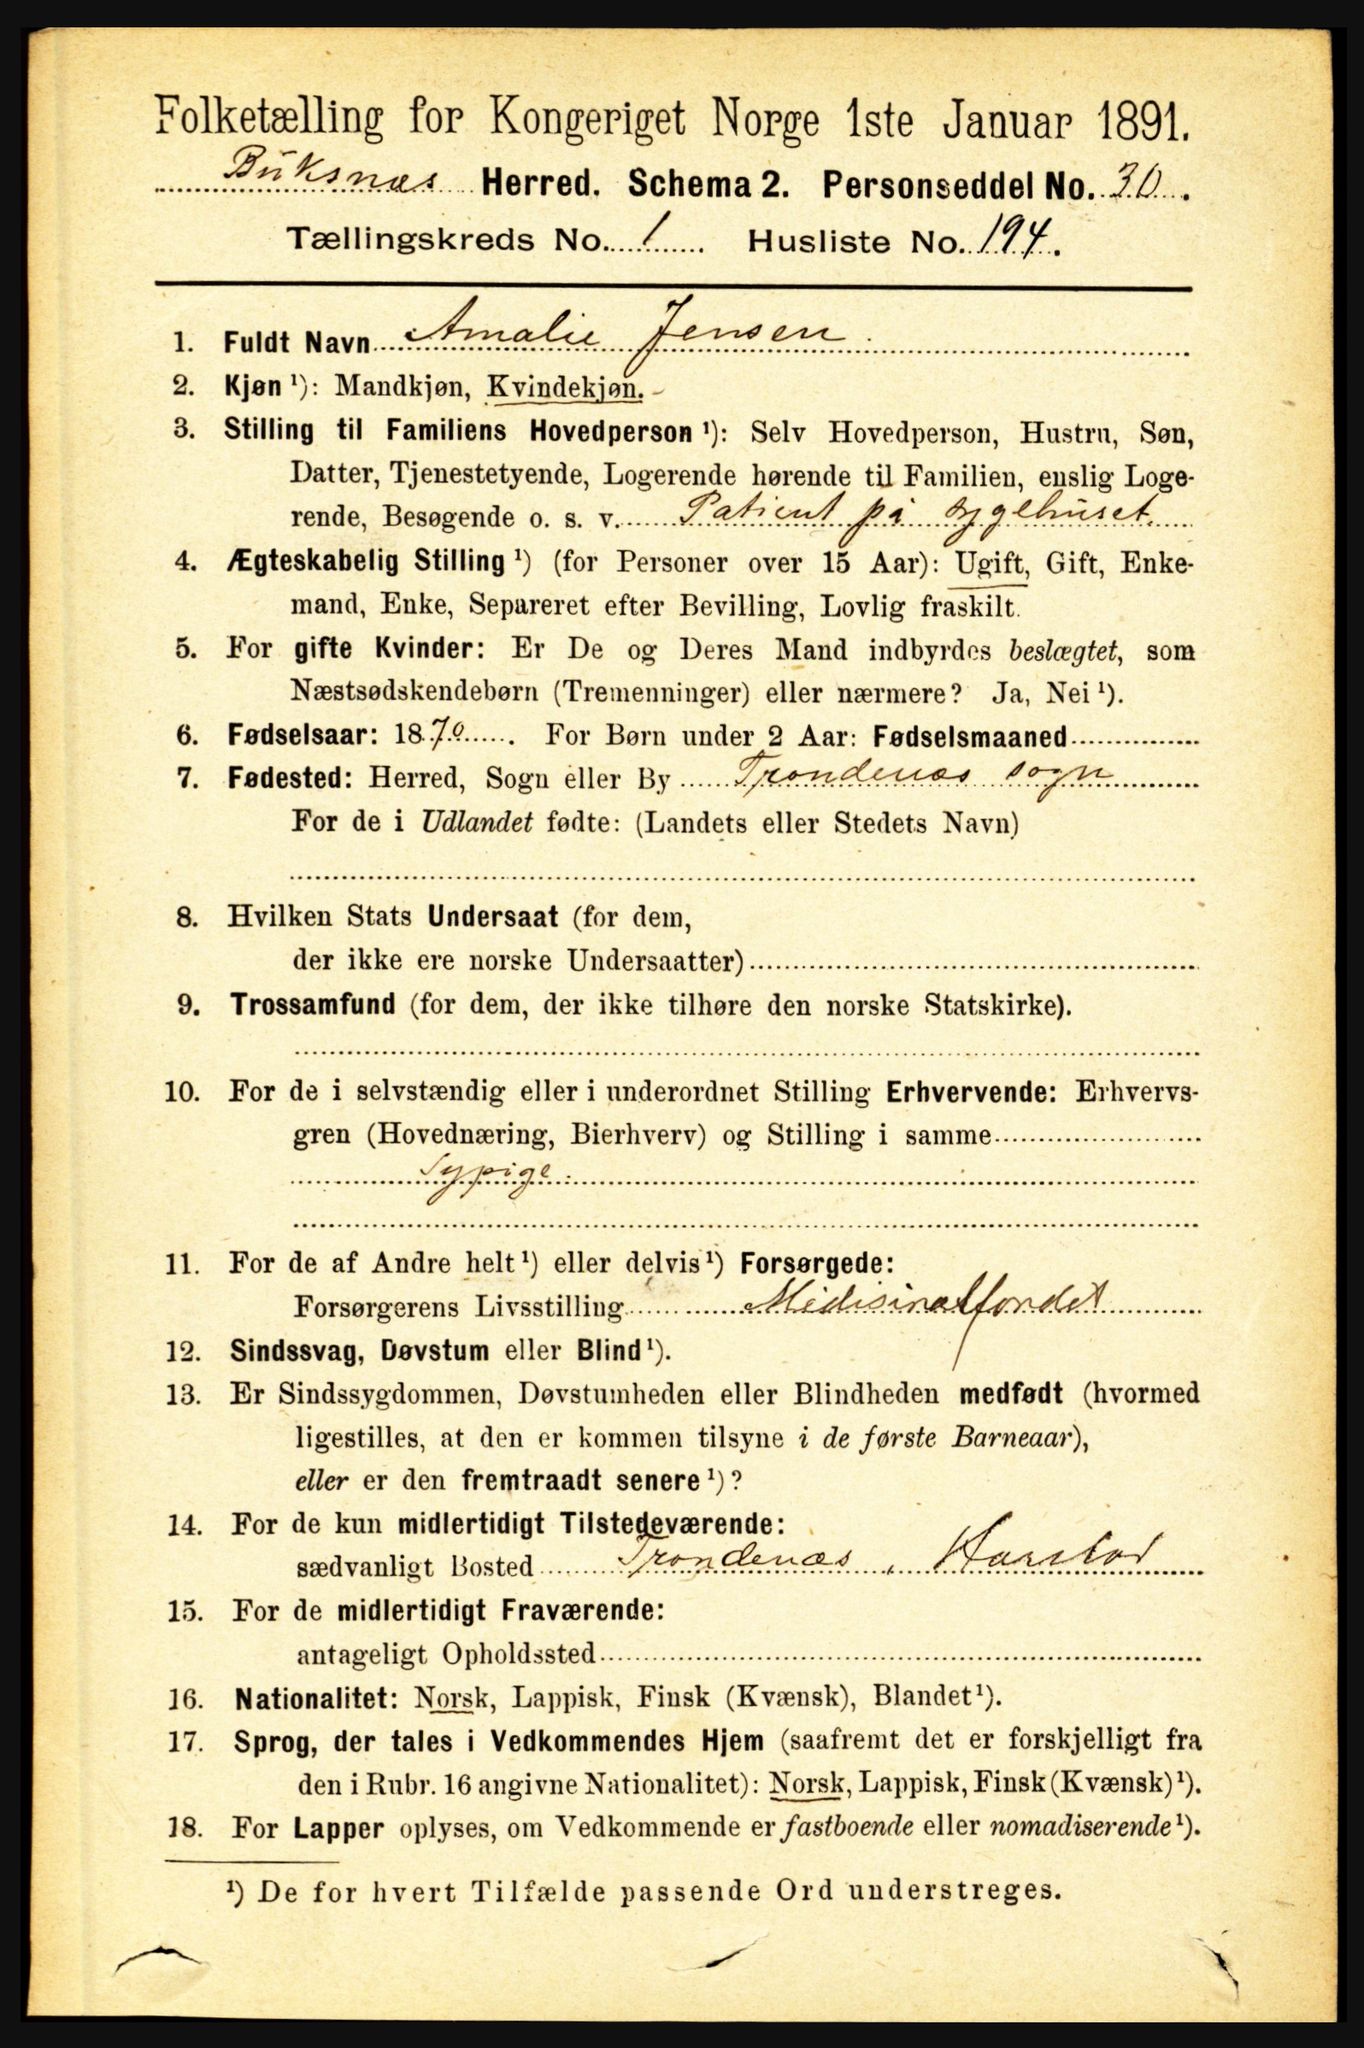 Folketælling for Kongeriget Norge 1ste Januar 1891.
Buksnæs Herred. Schema 2. Personseddel No. 30.
Tællingskreds No. 1 Husliste No. 194.
1. Fuldt Navn Amalie Jensen
2. Kjøn ¹): Mandkjøn, Kvindekjøn.
3. Stilling til Familiens Hovedperson ¹): Selv Hovedperson, Hustru, Søn,
Datter, Tjenestetyende, Logerende hørende til Familien, enslig Loge-
rende, Besøgende o. s. v. Patient på sygehuset
4. Ægteskabelig Stilling ¹) (for Personer over 15 Aar): Ugift, Gift, Enke-
mand, Enke, Separeret efter Bevilling, Lovlig fraskilt.
5. For gifte Kvinder: Er De og Deres Mand indbyrdes beslægtet, som
Næstsødskendebørn (Tremenninger) eller nærmere? Ja, Nei ¹).
6. Fødselsaar: 1870. For Børn under 2 Aar: Fødselsmaaned
7. Fødested: Herred, Sogn eller By Trondenæs sogn
For de i Udlandet fødte: (Landets eller Stedets Navn)
8. Hvilken Stats Undersaat (for dem,
der ikke ere norske Undersaatter)
9. Trossamfund (for dem, der ikke tilhøre den norske Statskirke).
10. For de i selvstændig eller i underordnet Stilling Erhvervende: Erhvervs-
gren (Hovednæring, Bierhverv) og Stilling i samme
Sypige.
11. For de af Andre helt ¹) eller delvis ¹) Forsørgede:
Forsørgerens Livsstilling Medisinalfondet
12. Sindssvag, Døvstum eller Blind ¹).
13. Er Sindssygdommen, Døvstumheden eller Blindheden medfødt (hvormed
ligestilles, at den er kommen tilsyne i de første Barneaar),
eller er den fremtraadt senere ¹)?
14. For de kun midlertidigt Tilstedeværende:
sædvanligt Bosted Trondenæs, Harstad
15. For de midlertidigt Fraværende:
antageligt Opholdssted
16. Nationalitet: Norsk, Lappisk, Finsk (Kvænsk), Blandet ¹).
17. Sprog, der tales i Vedkommendes Hjem (saafremt det er forskjelligt fra
den i Rubr. 16 angivne Nationalitet): Norsk, Lappisk, Finsk (Kvænsk) ¹).
18. For Lapper oplyses, om Vedkommende er fastboende eller nomadiserende ¹).
¹) De for hvert Tilfælde passende Ord understreges.